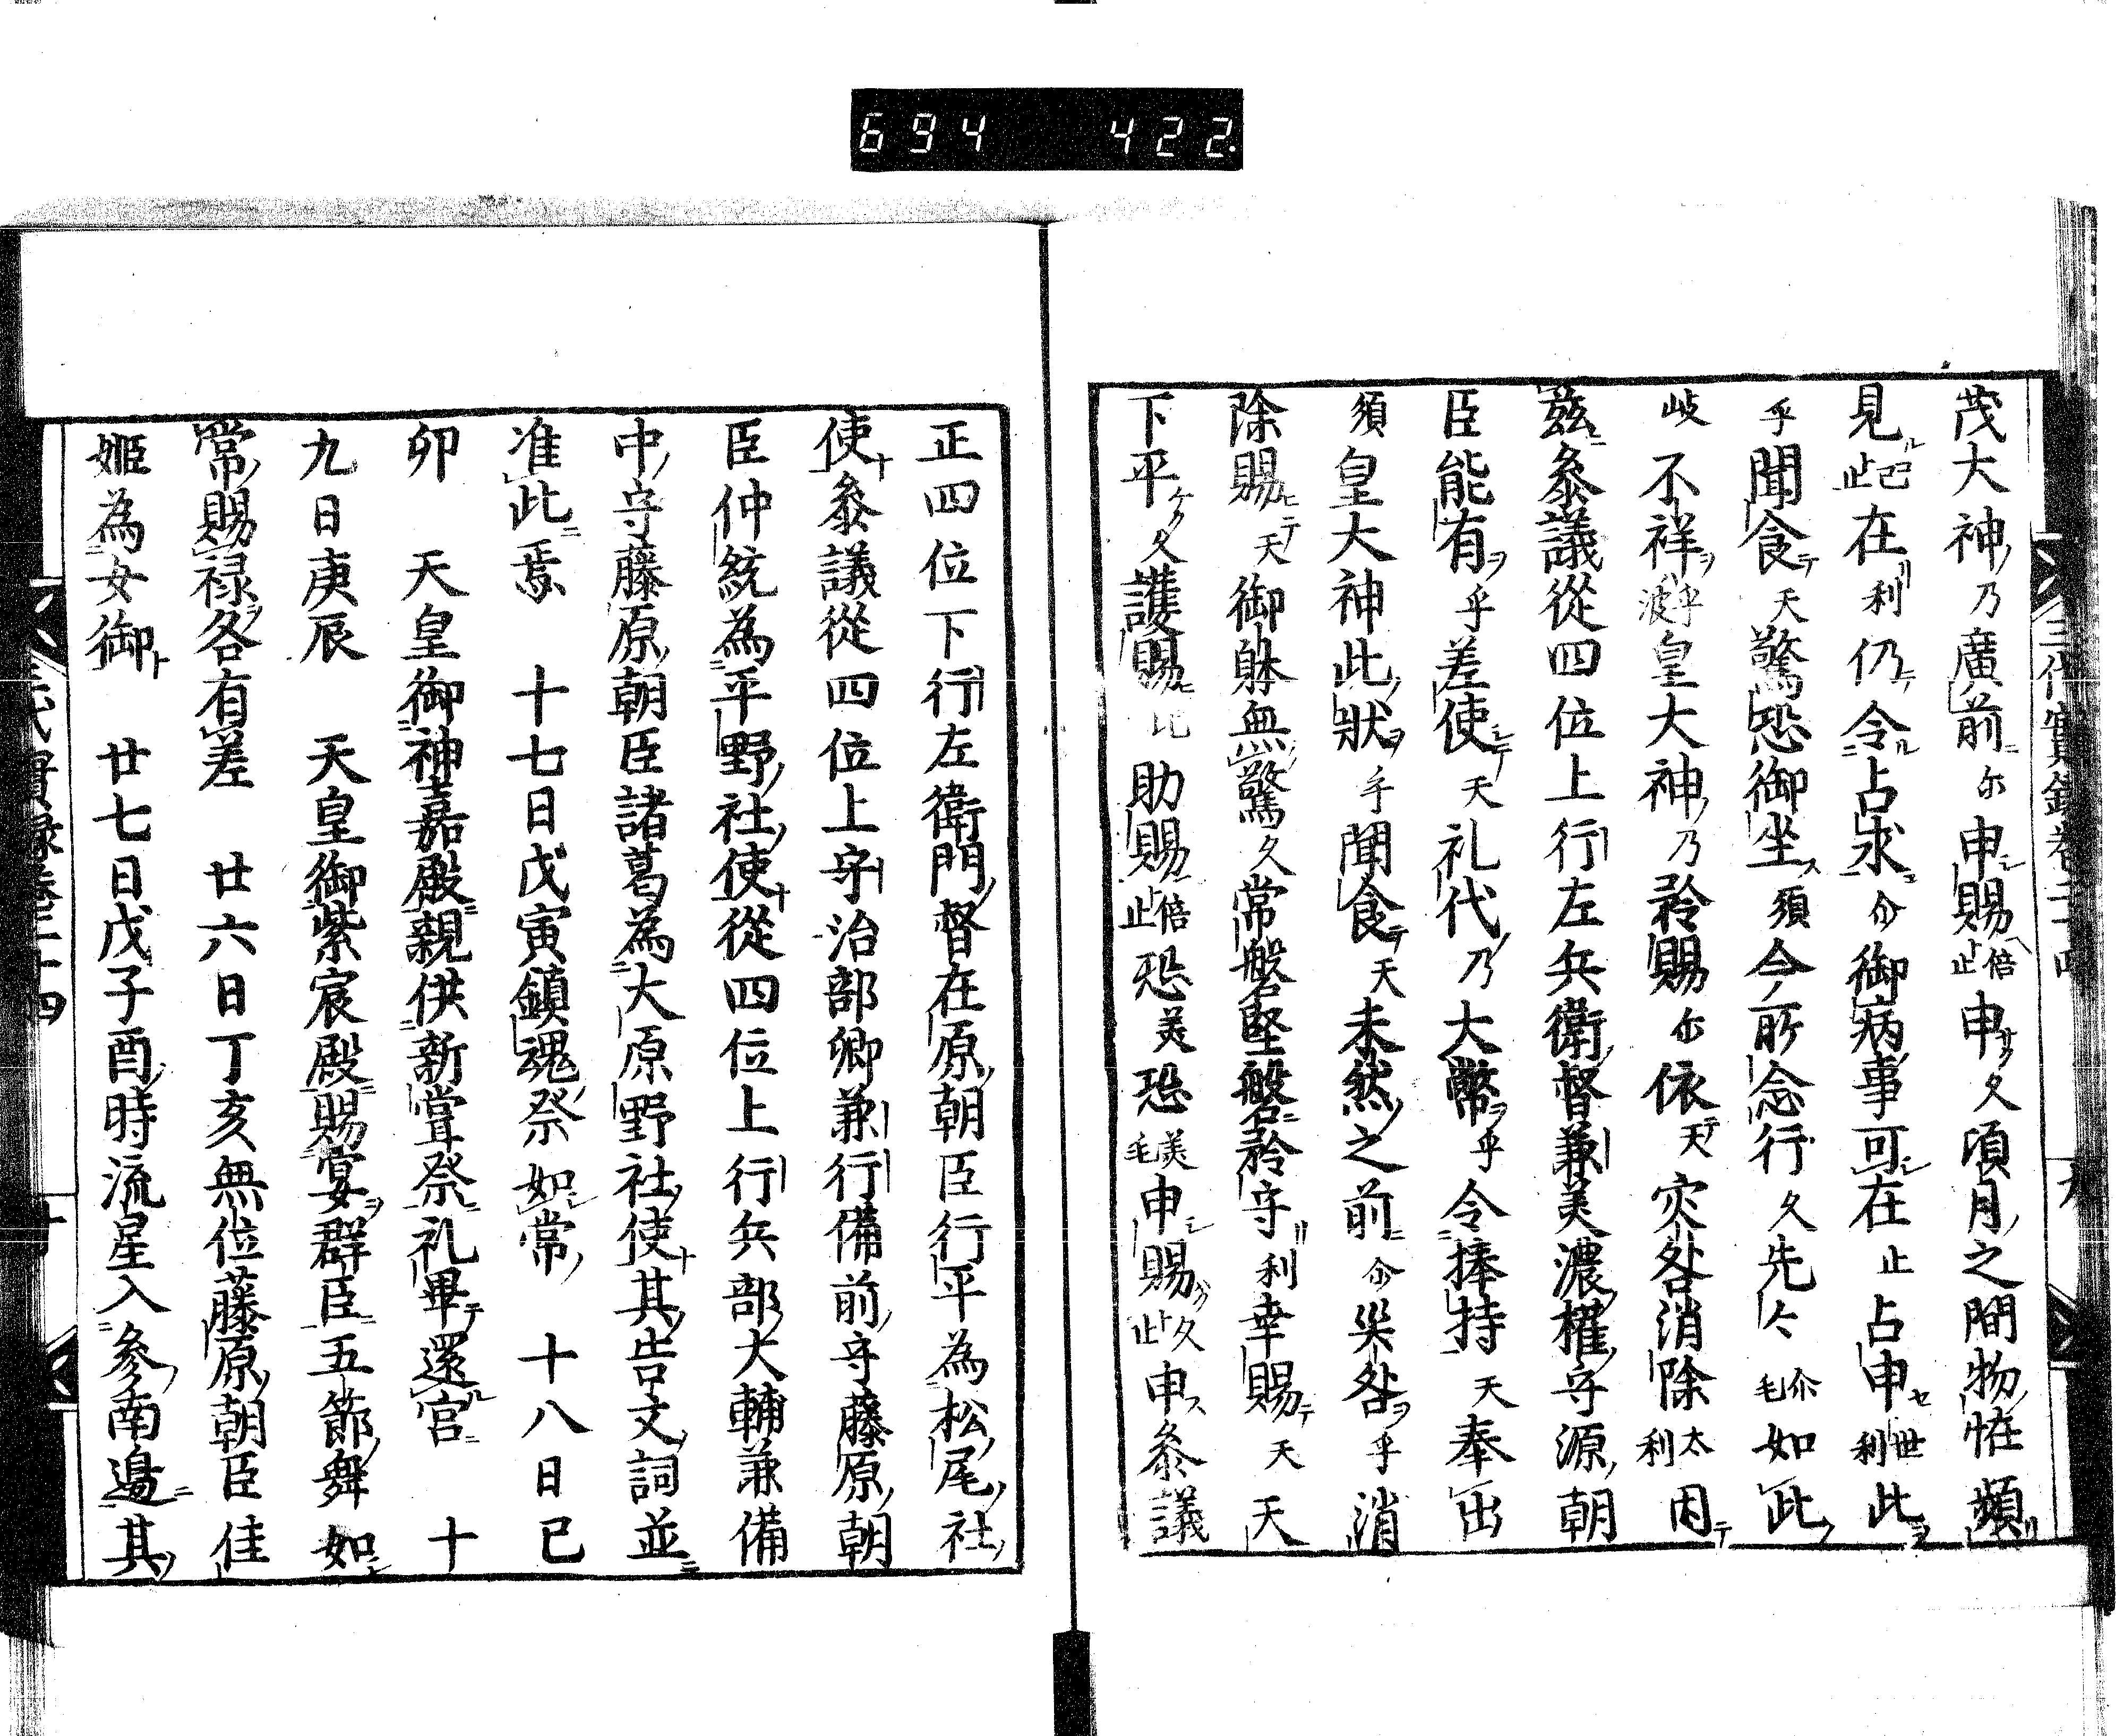 694 422
茂大神乃廣前尓申賜倍止申久頃月之間物恠頻
見由巳止在利仍令占求尓御病事可在止占申世利此
乎聞食天驚恐御坐須今所念行久先々尓毛如此
岐不祥波乎皇大神乃矜賜尓依天灾咎消除太利因
茲叅議從四位上行左兵衛督兼美濃權守源朝
臣能有乎差使天礼代乃大幣乎令捧持天奉出
須皇大神此狀乎聞食天未然之前尓灾咎乎消
除賜天御躰無驚久常磐堅磐矜守利幸賜天天
下平久護賜比助賜倍止恐美恐美毛申賜久止申叅議
正四位下行左衛門督在原朝臣行平為松尾社
使叅議從四位上守治部卿兼行備前守藤原朝
臣仲統為平野社使從四位上行兵部大輔兼備
中守藤原朝臣諸葛為大原野社使其告文詞並
准此焉 十七日戊寅鎮魂祭如常 十八日已
卯 天皇御神嘉殿親供新甞祭礼畢還宮 十
九日庚辰 天皇御紫宸殿賜宴群臣五節舞如
常賜禄各有差 廿六日丁亥無位藤原朝臣佳
姬為女御 廿七日戊子酉時流星入參南邊其